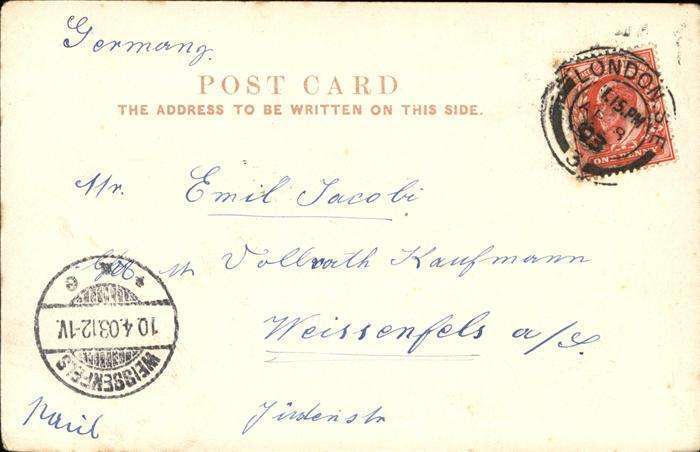 Germany.
POST CARD
THE ADDRESS TO BE WRITTEN ON THIS SIDE.
LONDON. S.E
1.15.PM
AP 8
03
3
ONE PENNY
Mr. Emil Jacobi
Vollrath Kaufmann
Weissenfels a/S.
Jüdenstr
WEISSENFELS
10.4.03.12-1V.
* * e